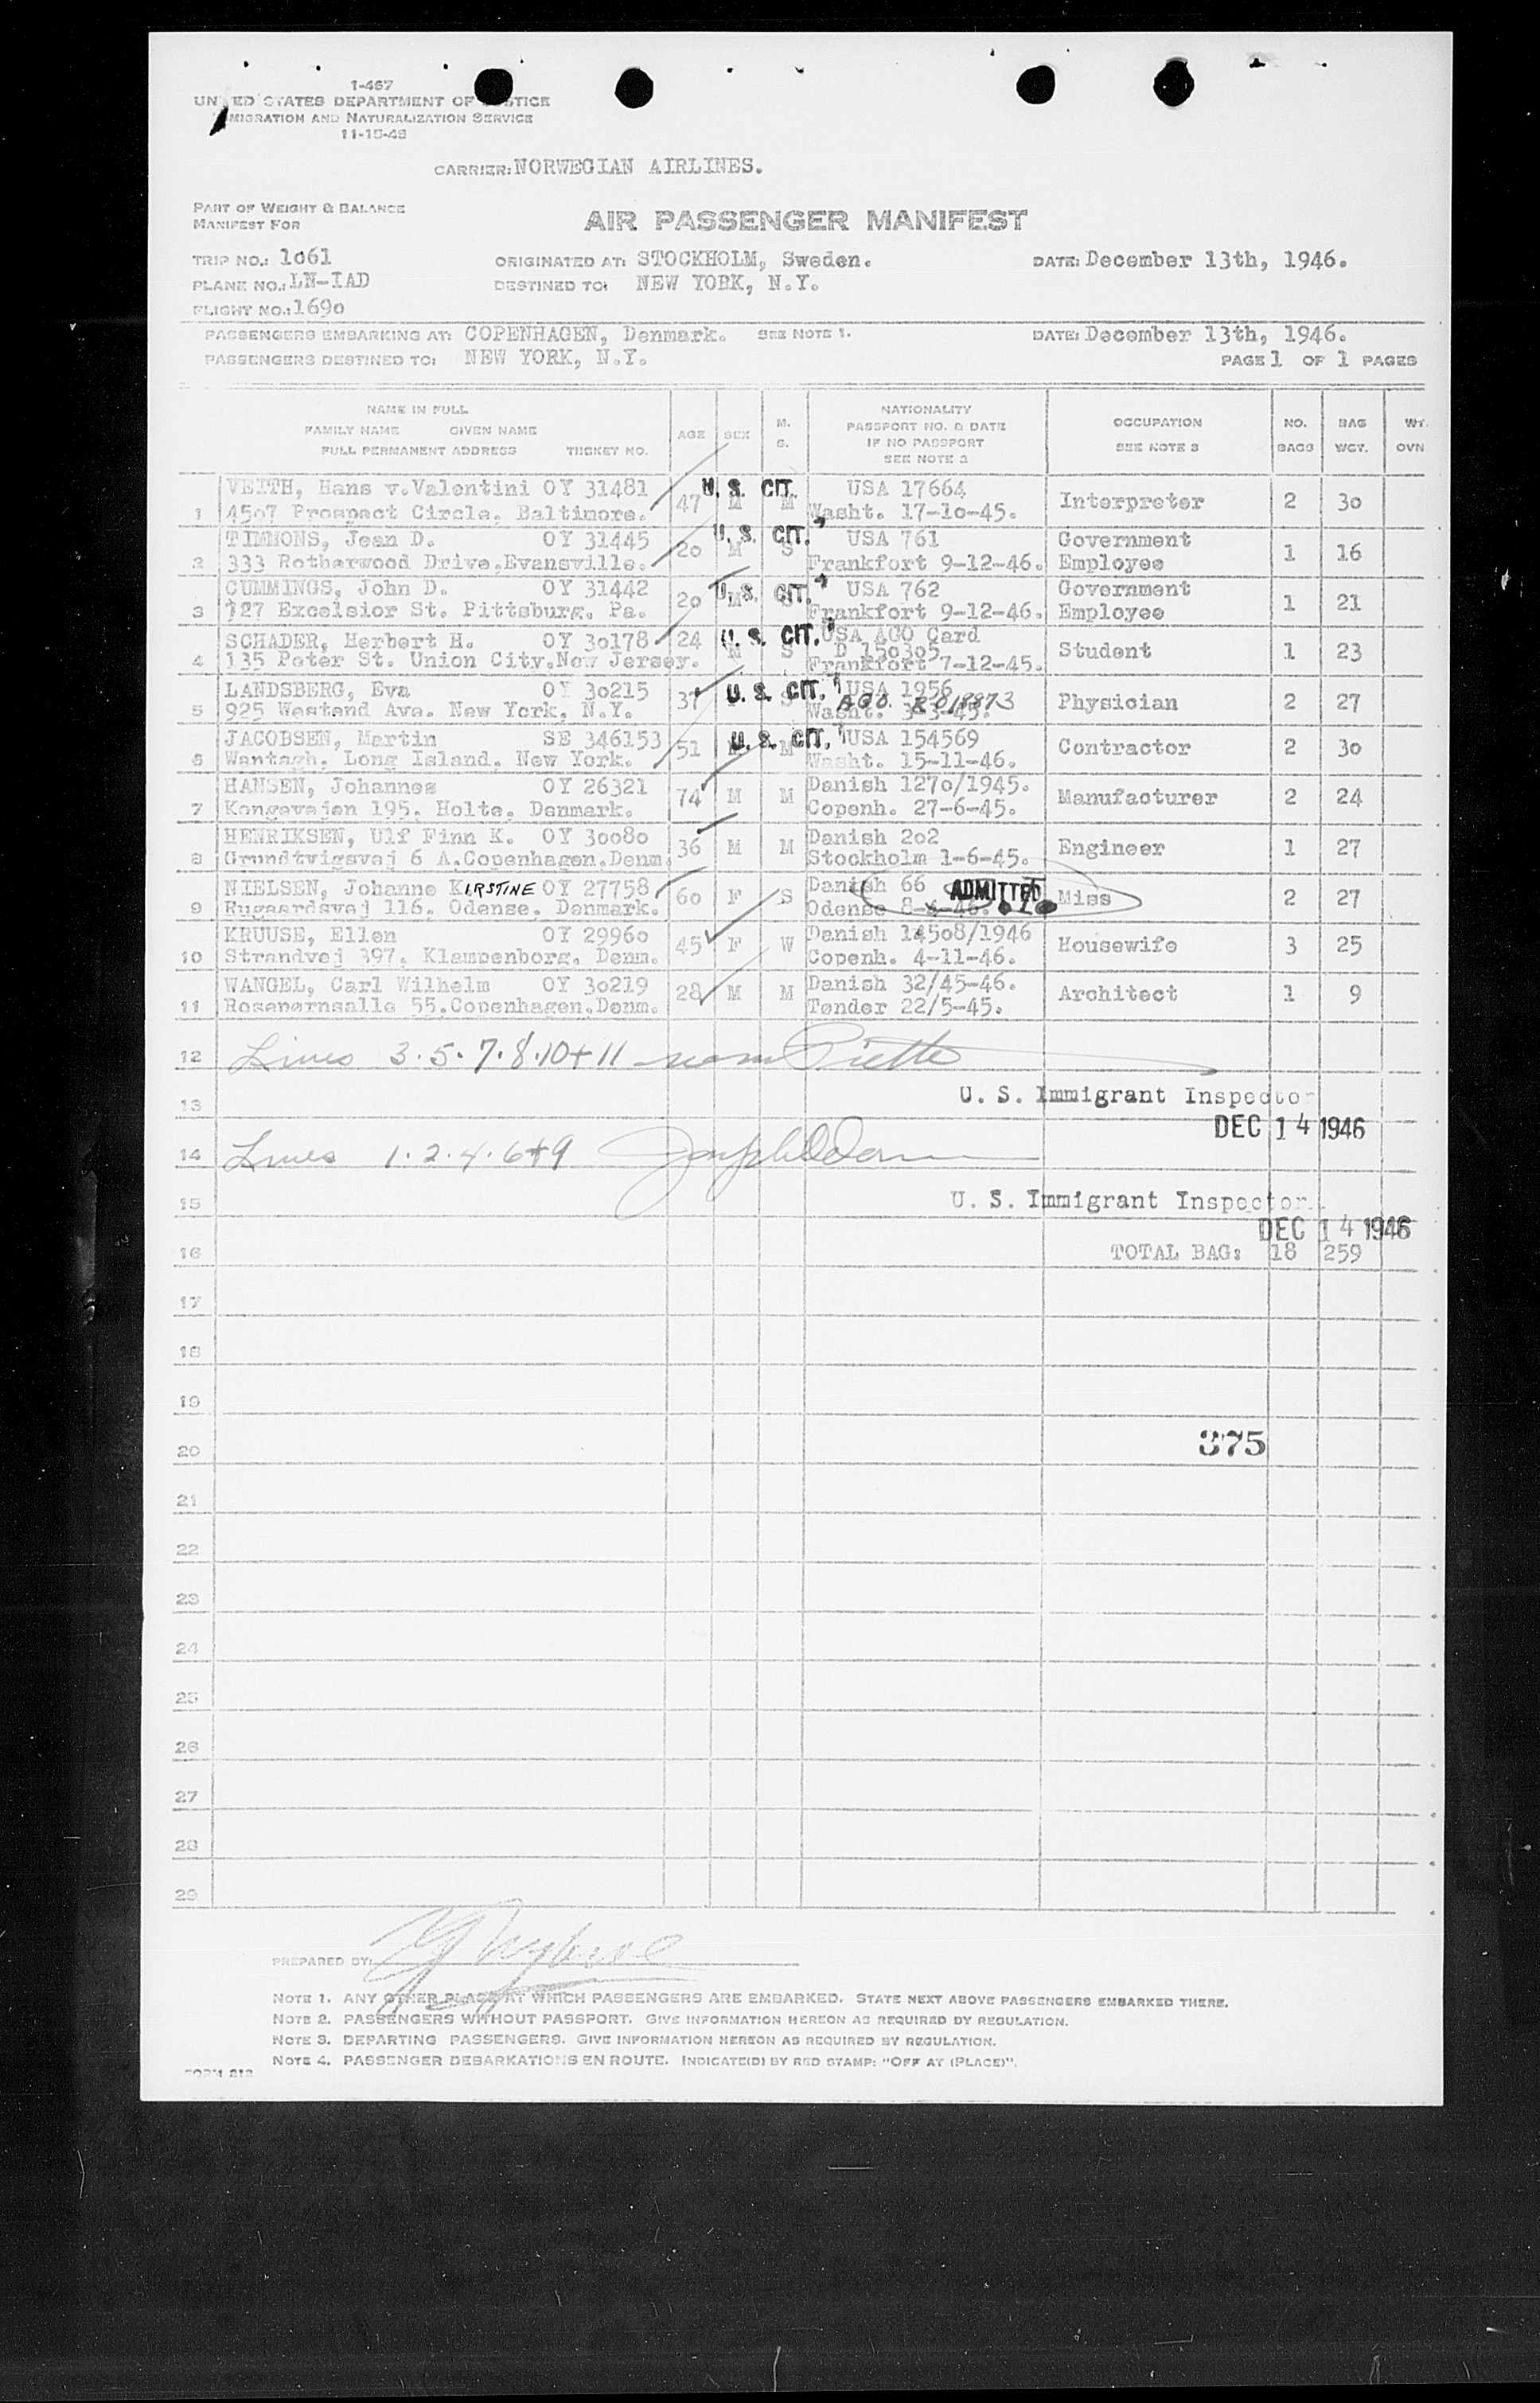 1-467
UNITED STATES DEPARTMENT OF JUSTICE
IMMIGRATION AND NATURALIZATION SERVICE
11-15-45
CARRIER: NORWEGIAN AIRLINES.
PART OF WEIGHT & BALANCE
MANIFEST FOR
AIR PASSENGER MANIFEST
TRIP NO.: 1o61 ORIGINATED AT: STOCKHOLM, Sweden. DATE: December 13th, 1946.
PLANE NO.: LN-IAD DESTINED TO: NEW YORK, N.Y.
FLIGHT NO.: 169o
PASSENGERS EMBARKING AT: COPENHAGEN, Denmark. SEE NOTE 1. DATE: December 13th, 1946.
PASSENGERS DESTINED TO: NEW YORK, N.Y. PAGE 1 OF 1 PAGES
NAME IN FULL NATIONALITY
FAMILY NAME GIVEN NAME AGE SEX M. S. PASSPORT NO. & DATE OCCUPATION NO. BAG WT.
FULL PERMANENT ADDRESS TICKET NO. IF NO PASSPORT SEE NOTE 3 BAGS WGT. OVN
SEE NOTE 2
VEITH, Hans v.Valentini OY 31481 47 M M U. S. CIT. USA 17664 Interpreter 2 3o
1 45o7 Prospect Circle. Baltimore. Washt. 17-1o-45.
TIMMONS, Jean D. OY 31445 2o M S U. S. CIT. USA 761 Government 1 16
2 333 Rotherwood Drive.Evansville. Frankfort 9-12-46. Employee
CUMMINGS, John D. OY 31442 2o M S U. S. CIT. USA 762 Government 1 21
3 727 Excelsior St. Pittsburg. Pa. Frankfort 9-12-46. Employee
SCHADER, Herbert H. OY 3o178 24 M S U. S. CIT. USA AGO Card Student 1 23
D 15o3o5
4 135 Peter St. Union City.New Jersey. Frankfort 7-12-45.
LANDSBERG, Eva OY 3o215 37 S U. S. CIT. USA 1956 Physician 2 27
5 925 Westend Ave. New York, N.Y. Washt. 3-3-45. AGO.
JACOBSEN, Martin SE 346153 51 M U. S. CIT. USA 154569 Contractor 2 3o
6 Wantagh. Long Island. New York. Washt. 15-11-46.
HANSEN, Johannes OY 26321 74 M M Danish 127o/1945. Manufacturer 2 24
7 Kongevejen 195. Holte. Denmark. Copenh. 27-6-45.
HENRIKSEN, Ulf Finn K. OY 3oo8o 36 M M Danish 2o2 Engineer 1 27
8 Grundtvigsvej 6 A.Copenhagen.Denm. Stockholm 1-6-45.
NIELSEN, Johanne KIRSTINE OY 27758 6o F S Danish 66 ADMITTED Miss 2 27
9 Rugaardsvej 116. Odense. Denmark. Odense
KRUUSE, Ellen OY 2996o 45 F W Danish 145o8/1946 Housewife 3 25
10 Strandvej 397. Klampenborg. Denm. Copenh. 4-11-46.
WANGEL, Carl Wilhelm OY 3o219 28 M M Danish 32/45-46. Architect 1 9
11 Rosenørnsalle 55.Copenhagen.Denm. Tønder 22/5-45.
12 Lines 3.5.7.8.10+11
13 U. S. Immigrant Inspector
DEC 14 1946
14 Lines 1.2.4.6+9
15 U. S. Immigrant Inspector.
DEC 14 1946
16 TOTAL BAG: 18 259
17
18
19
20 375
21
22
23
24
25
26
27
28
29
PREPARED BY:
NOTE 1. ANY OTHER PLACE AT WHICH PASSENGERS ARE EMBARKED. STATE NEXT ABOVE PASSENGERS EMBARKED THERE.
NOTE 2. PASSENGERS WITHOUT PASSPORT. GIVE INFORMATION HEREON AS REQUIRED BY REGULATION.
NOTE 3. DEPARTING PASSENGERS. GIVE INFORMATION HEREON AS REQUIRED BY REGULATION.
NOTE 4. PASSENGER DEBARKATIONS EN ROUTE. INDICATE(D) BY RED STAMP: "OFF AT (PLACE)".
FORM 212